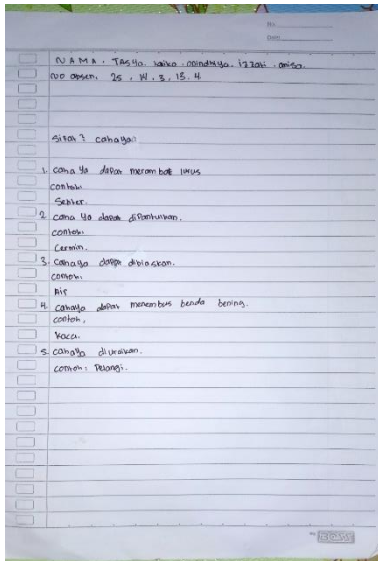 No
Date
NAMA. Tasya. Kaiko. anindhya. izzati. anisa.
No absen. 25, 14. 3, 13. 4
Sifat² cahaya:
1. cahaya dapat merambat lurus
contoh:
Senter.
2. cahaya dapat dipantulkan.
contoh:
Cermin.
3. Cahaya dapat dibiaskan.
contoh:
Air
4. cahaya dapat menembus benda bening.
contoh,
kaca.
5. cahaya diuraikan.
contoh: Pelangi.